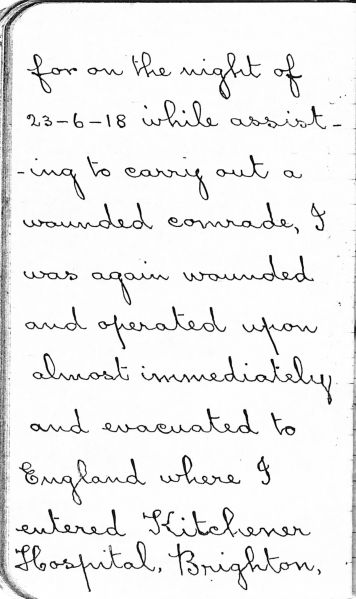 for on the night of
23-6-18 while assist-
-ing to carry out a
wounded comrade, I
was again wounded
and operated upon
almost immediately
and evacuated to
England where I
entered Kitchener
Hospital, Brighton,